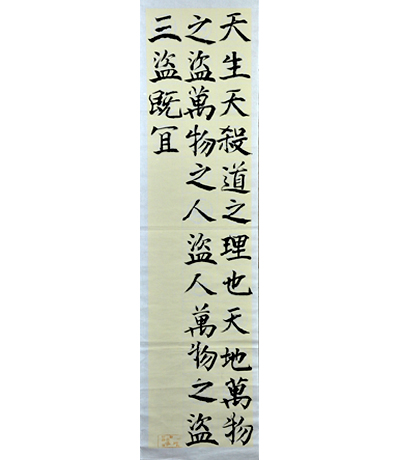 天生天殺道之理也天地萬物
之盜萬物之人盜人萬物之盜
三盜既冝